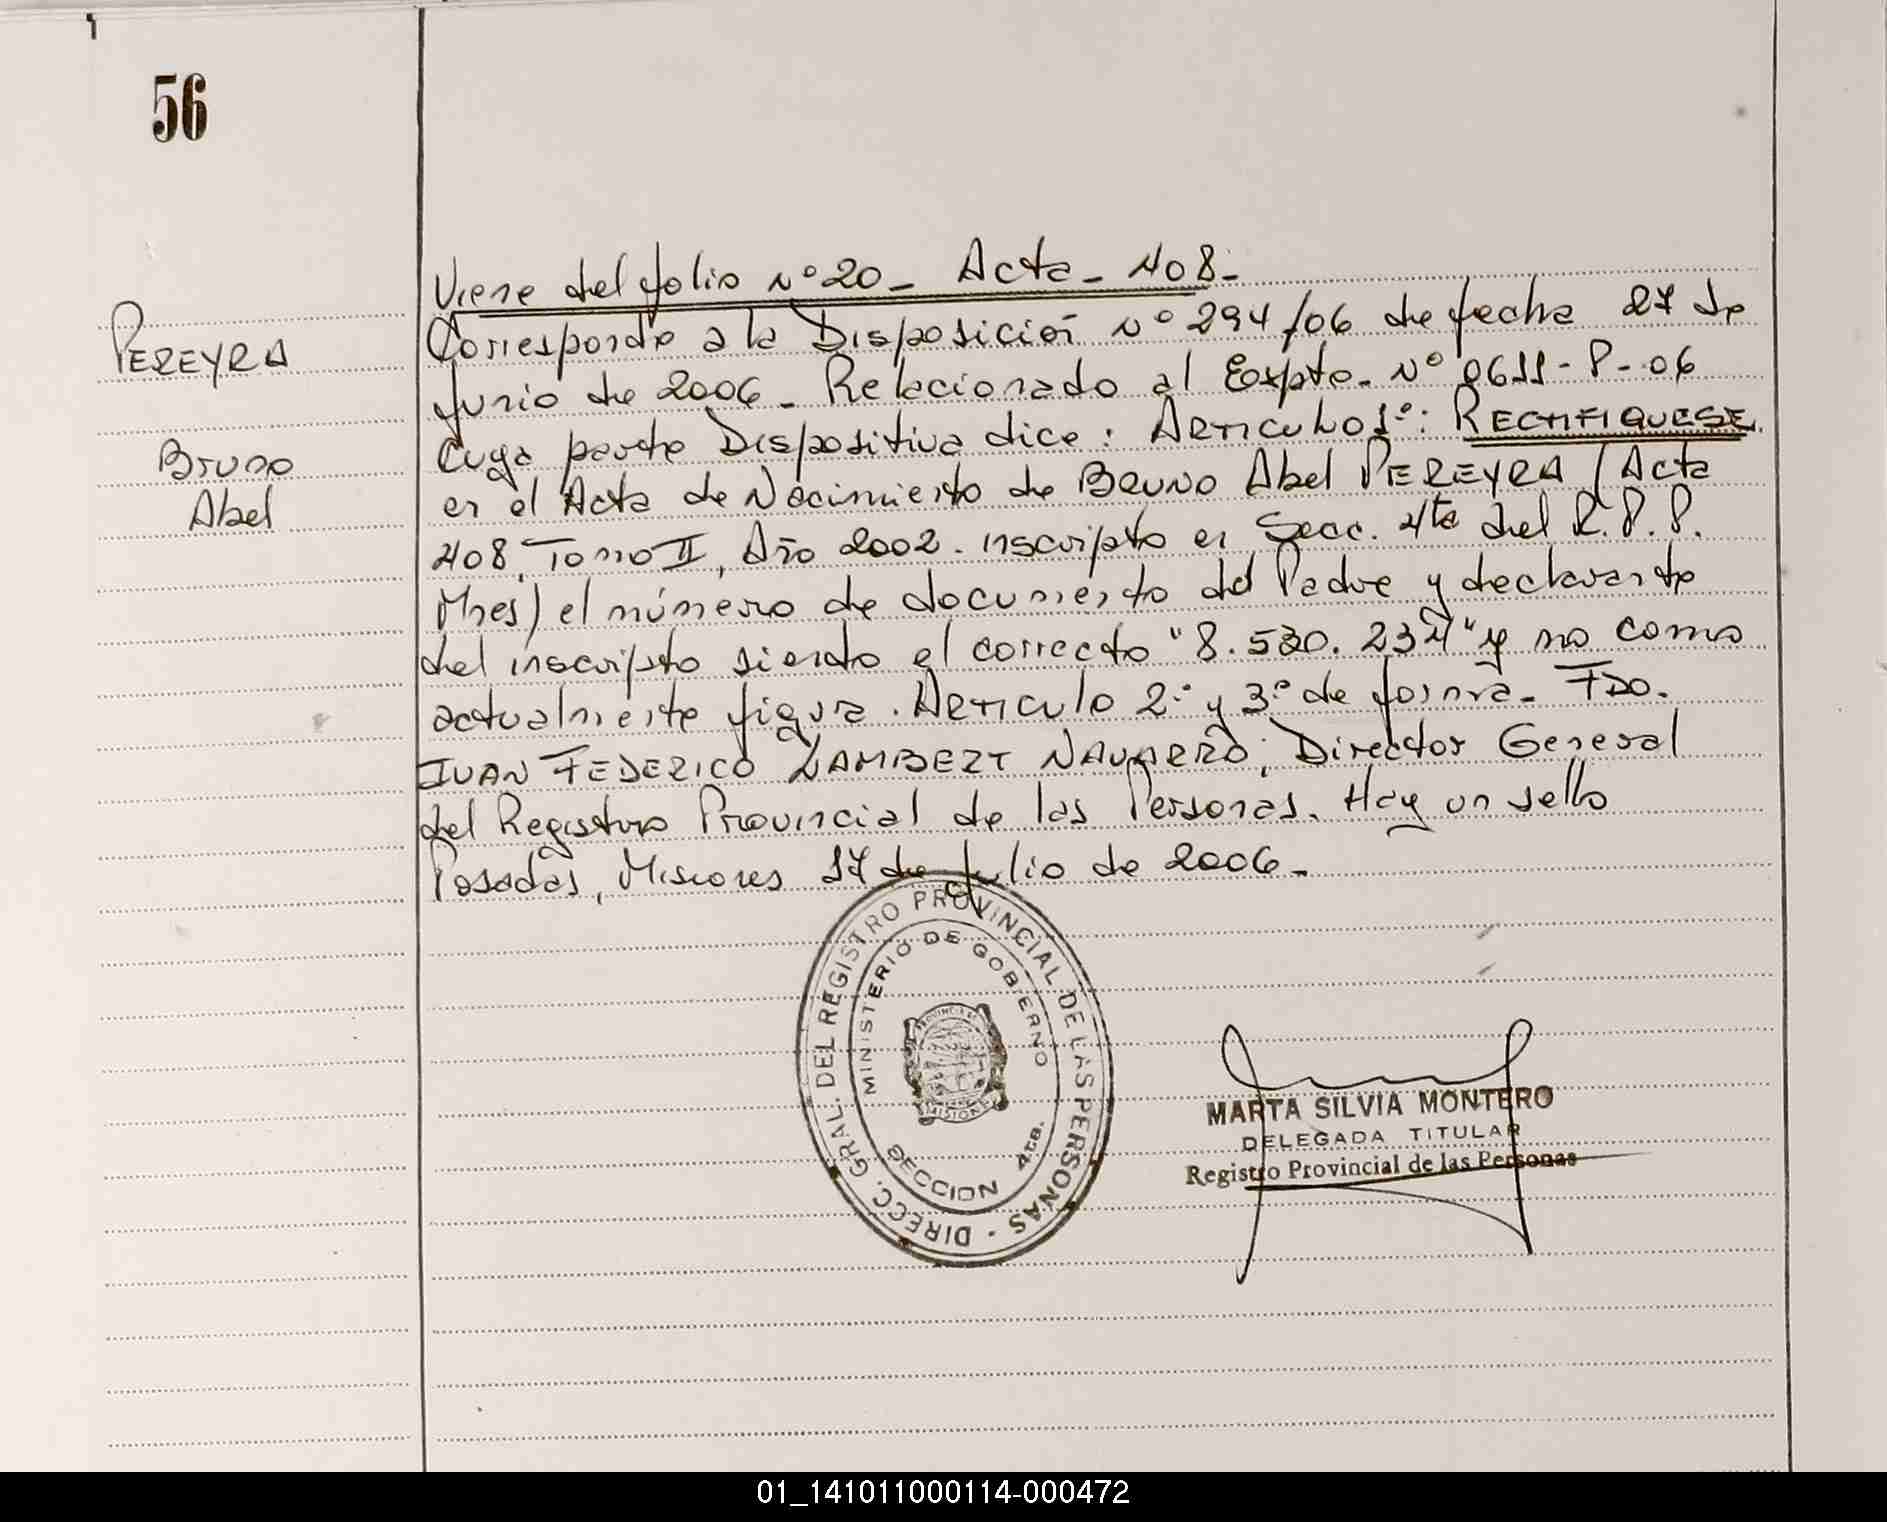 56
Viene del folio Nº 20 - Acta - 408 -
PEREYRA
Bruno
Abel
Corresponde a la Disposición Nº 294/06 de fecha 27 de
Junio de 2006 - Relacionado al Expte - Nº 0611 - P - 06
Cuya parte Dispositiva dice: ARTICULO 1º: RECTIFIQUESE
en el Acta de Nacimiento de BRUNO Abel PEREYRA (Acta
408, Tomo II, Año 2002 - inscripto en Secc. 4ta del R.P.P.
Mnes) el número de documento del Padre y declarante
del inscripto siendo el correcto "8.530.234" y no como
actualmente figura. ARTICULO 2º y 3º de forma - FDO.
JUAN FEDERICO LAMBERT NAVARRO; Director General
del Registro Provincial de las Personas. Hay un sello
Posadas, Misiones 17 de Julio de 2006 -
DIRECC. GRAL. DEL REGISTRO PROVINCIAL DE LAS PERSONAS -
MINISTERIO DE GOBIERNO
PROVINCIA DE
MISIONES
SECCION 4ta.
MARTA SILVIA MONTERO
DELEGADA TITULAR
Registro Provincial de las Personas
01_141011000114-000472